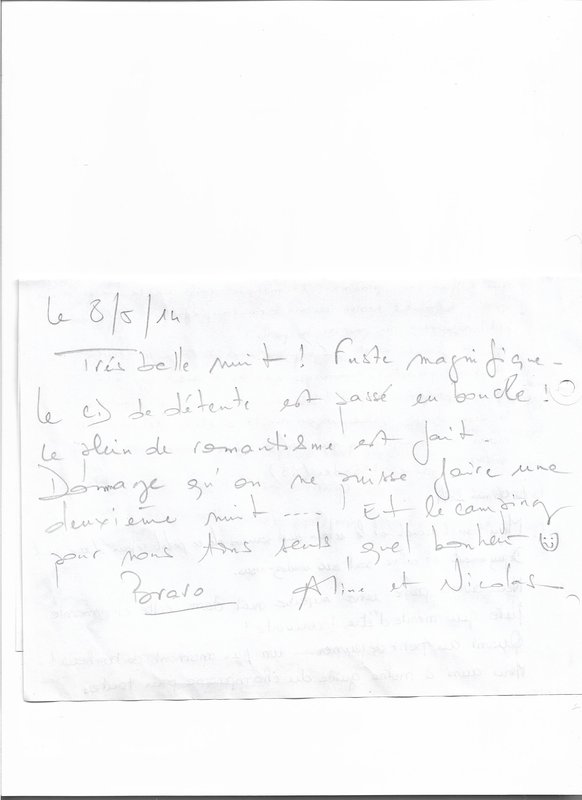 le 8/5/14
Très belle nuit ! Fuste magnifique -
Le CD de détente est passé en boucle !
Le plein de romantisme est fait.
Dommage qu'on ne puisse faire une
deuxième nuit .... ! Et le camping
pour nous tous seuls quel bonheur ☺
Bravo Aline et Nicolas